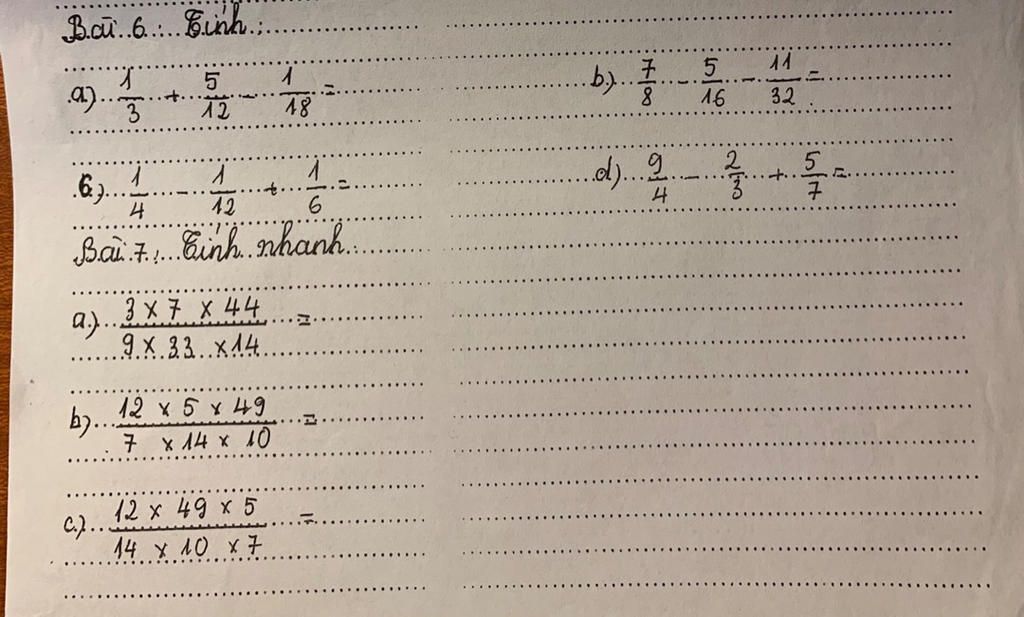 Bài 6: Tính:
a) 1/3 + 5/12 - 1/18 =
b) 7/8 - 5/16 - 11/32 =
6) 1/4 - 1/12 + 1/6 =
d) 9/4 - 2/3 + 5/7 =
Bài 7: Tính nhanh:
a) 3 x 7 x 44 =
9 x 33 x 14
b) 12 x 5 x 49 =
7 x 14 x 10
c) 12 x 49 x 5 =
14 x 10 x 7